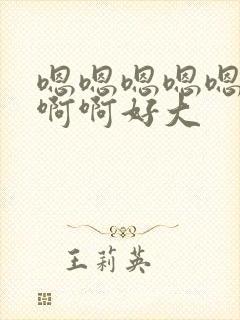 嗯嗯嗯嗯嗯
啊啊好大
王莉英